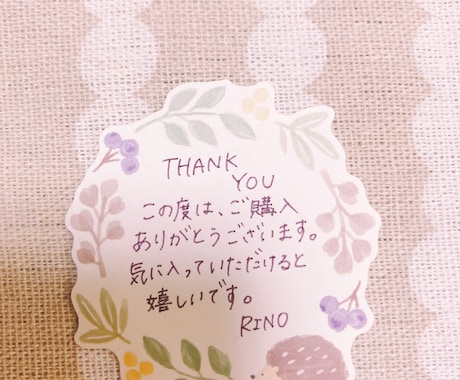 THANK
YOU
この度は、ご購入
ありがとうございます。
気に入っていただけると
嬉しいです。
RINO